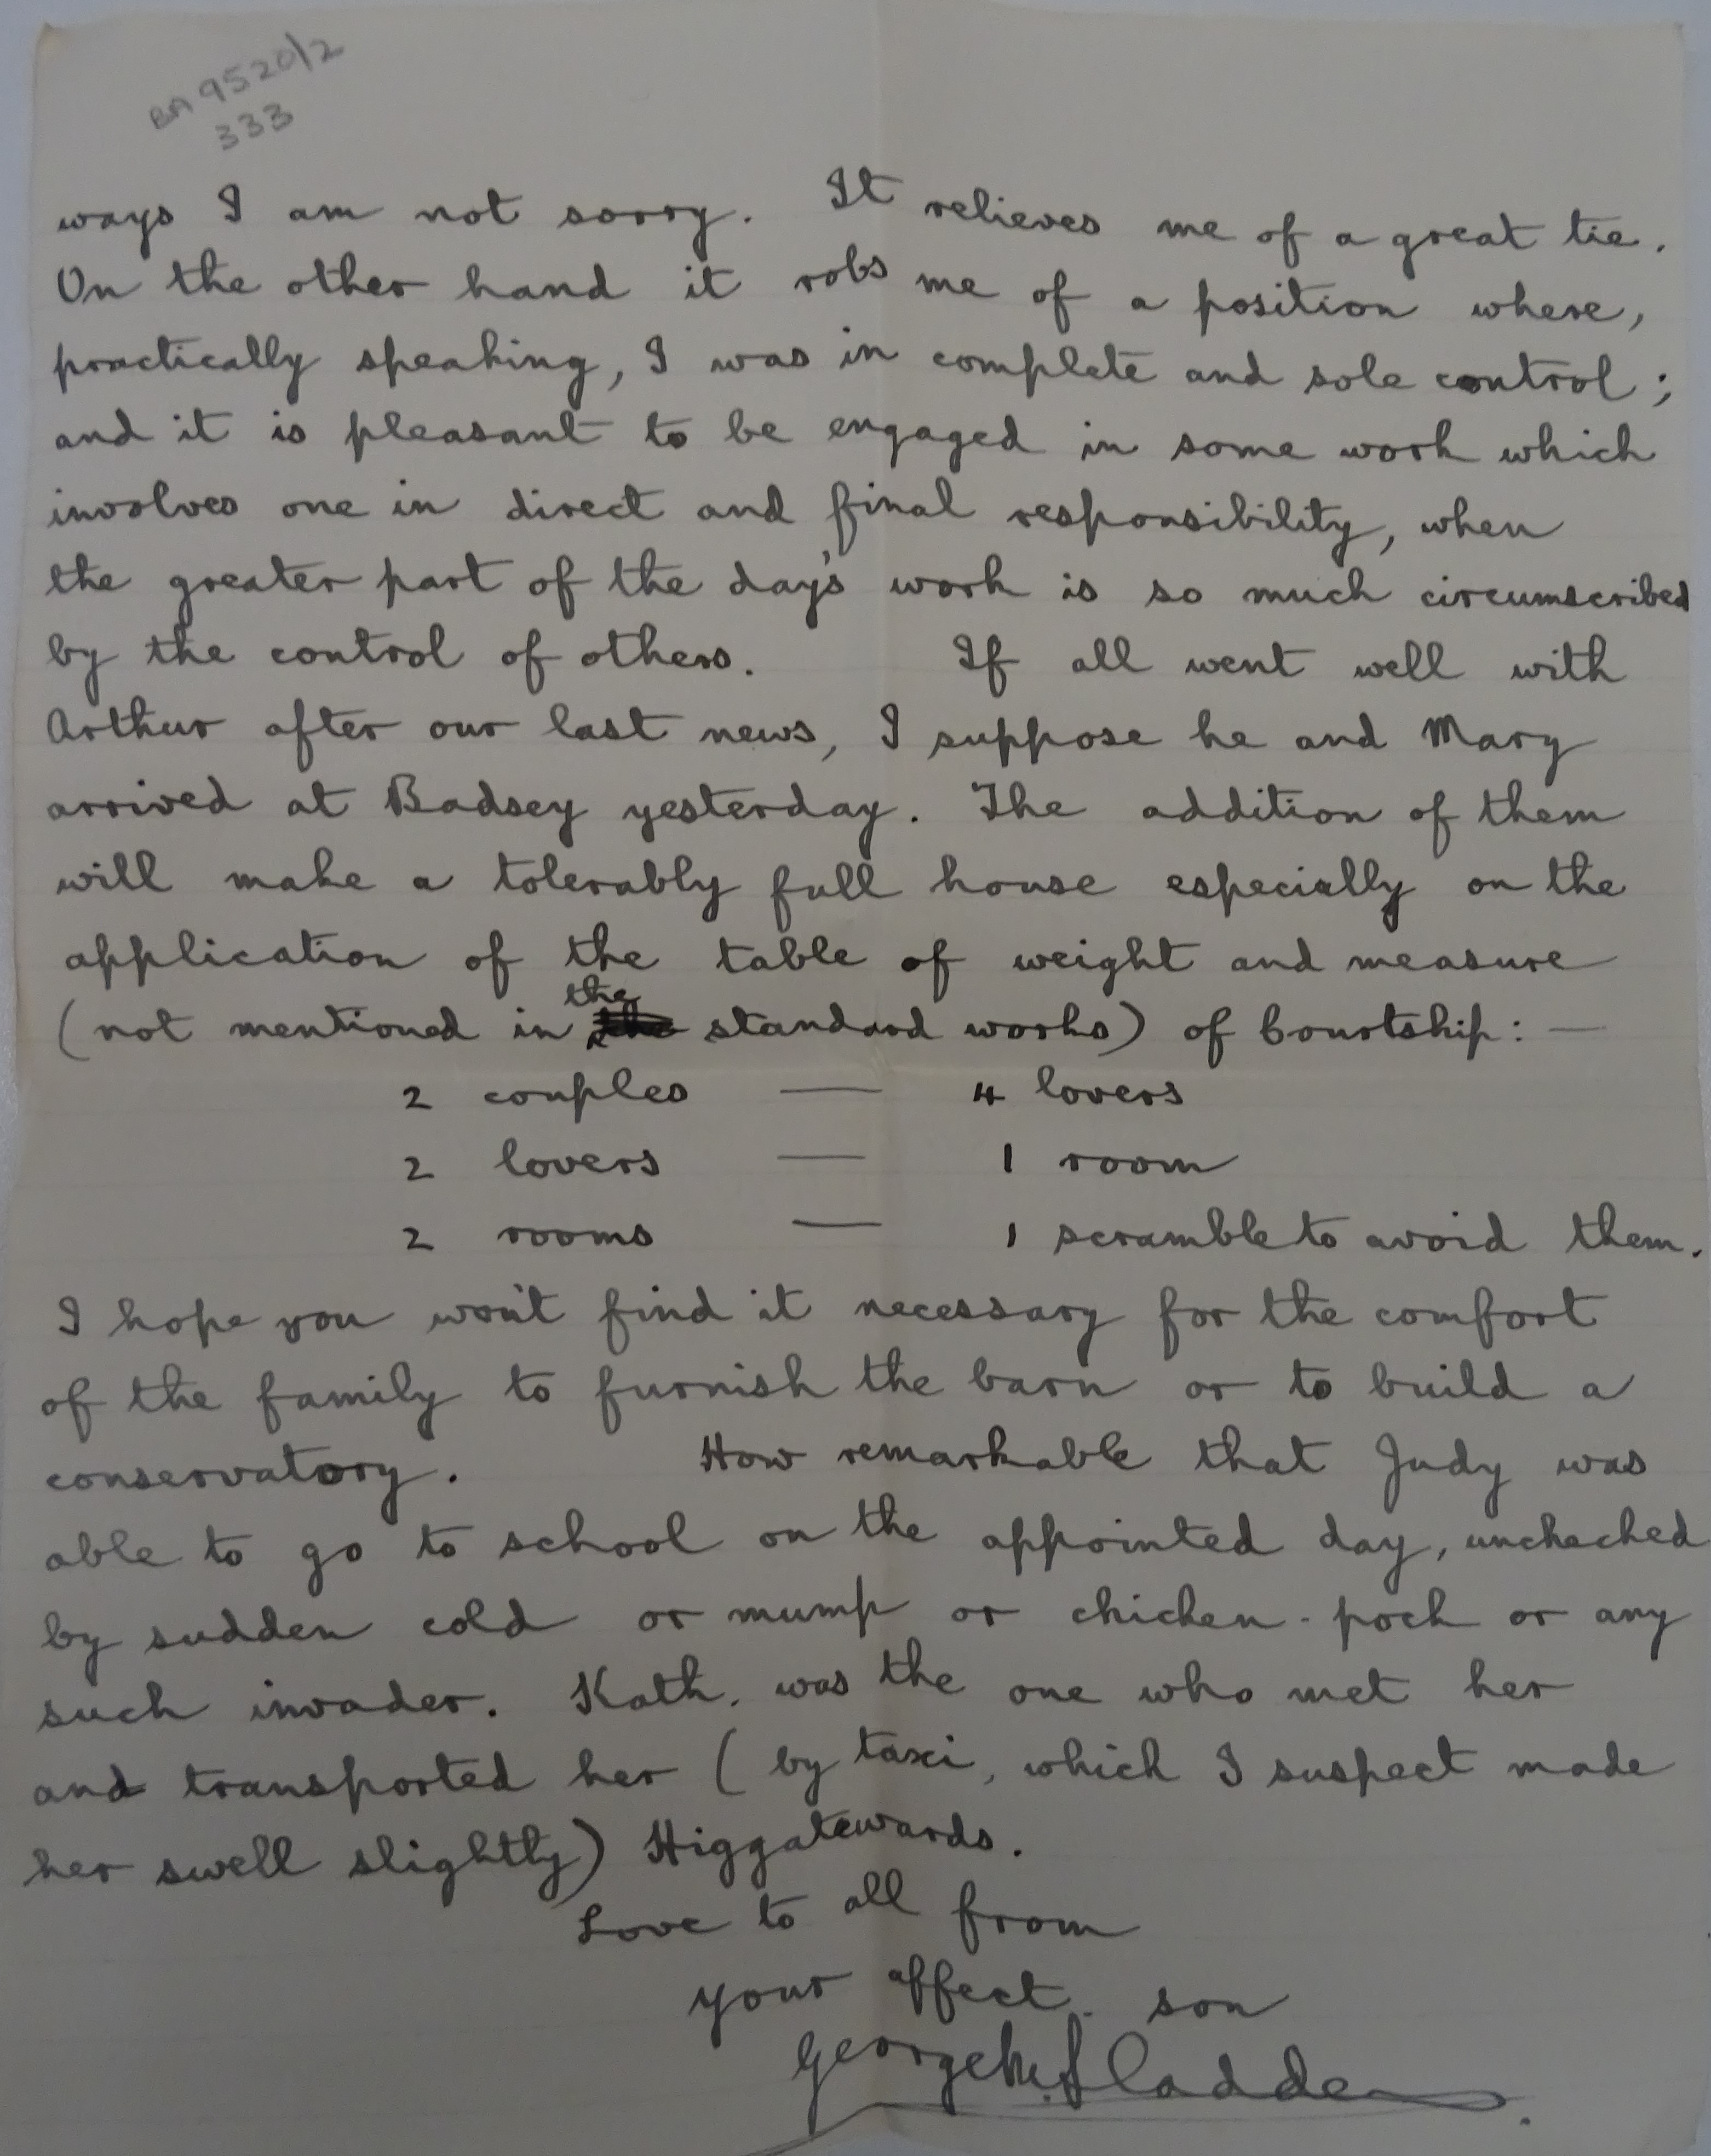 BA 9520/2
333
ways I am not sorry. It relieves me of a great tie.
On the other hand it robs me of a position where,
practically speaking, I was in complete and sole control;
and it is pleasant to be engaged in some work which
involves one in direct and final responsibility, when
the greater part of the day's work is so much circumscribed
by the control of others. If all went well with
Arthur after our last news, I suppose he and Mary
arrived at Badsey yesterday. The addition of them
will make a tolerably full house especially on the
application of the table of weight and measure
(not mentioned in the standard works) of Courtship: —
2 couples — 4 lovers
2 lovers — 1 room
2 rooms — 1 scramble to avoid them.
I hope you won't find it necessary for the comfort
of the family to furnish the barn or to build a
conservatory. How remarkable that Judy was
able to go to school on the appointed day, unchecked
by sudden cold or mump or chicken-pock or any
such invader. Kath. was the one who met her
and transported her (by taxi, which I suspect made
her swell slightly) Higgatewards.
Love to all from
your affect. son
George M. Sladden.